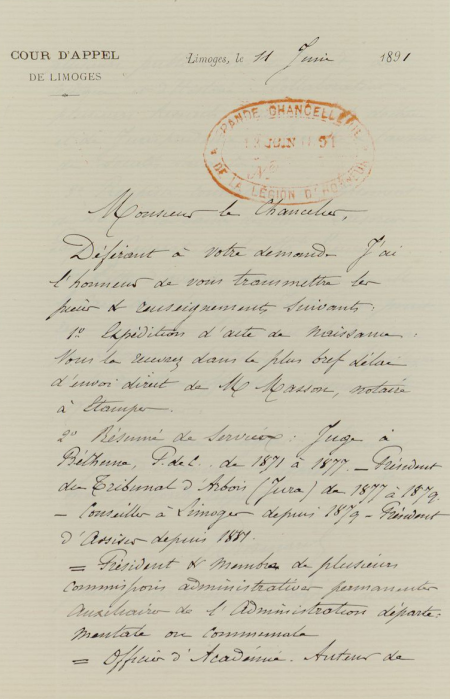 COUR D'APPEL
DE LIMOGES
Limoges, le 11 Juin 1891
GRANDE CHANCELLERIE
JUIN 91
DE LA LÉGION D'HONNEUR
Monsieur le Chancelier,
Déférant à votre demande J'ai
l'honneur de vous transmettre les
pièces & renseignements suivants :
1º Expédition d'acte de naissance.
Vous la recevrez dans le plus bref délai
d'envoi direct de M Masson, notaire
à Etampes.
2º Résumé de services : Juge à
Béthune, P. de C. de 1871 à 1877. – Président
du Tribunal d'Arbois (Jura) de 1877 à 1879
– Conseiller à Limoges depuis 1879 – Président
d'Assises depuis 1881.
= Président & membre de plusieurs
commissions administratives permanentes
auxiliaires de l'Administration départe-
mentale ou communale
= Officier d'Académie. Auteur de